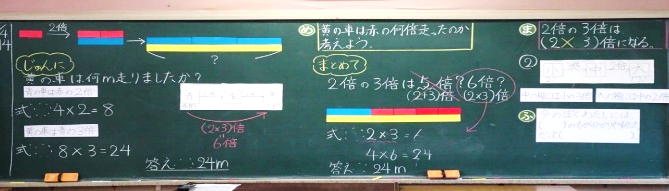 4
14
2倍
?
じゅんに
黄の車は何m走りましたか?
青の車は赤の2倍
式∵4×2=8
黄の車は青の3倍
式∵8×3=24
(2×3)倍
6倍
答え∵24m
め
黄の車は赤の何倍走ったのか
考えよう。
まとめて
2倍の3倍は5倍?6倍?
(2+3)倍 (2×3)倍
式∵2×3=6
4×6=24
答え∵24m
ま
2倍の3倍は
(2×3)倍になる。
②
小
中
大
ふ